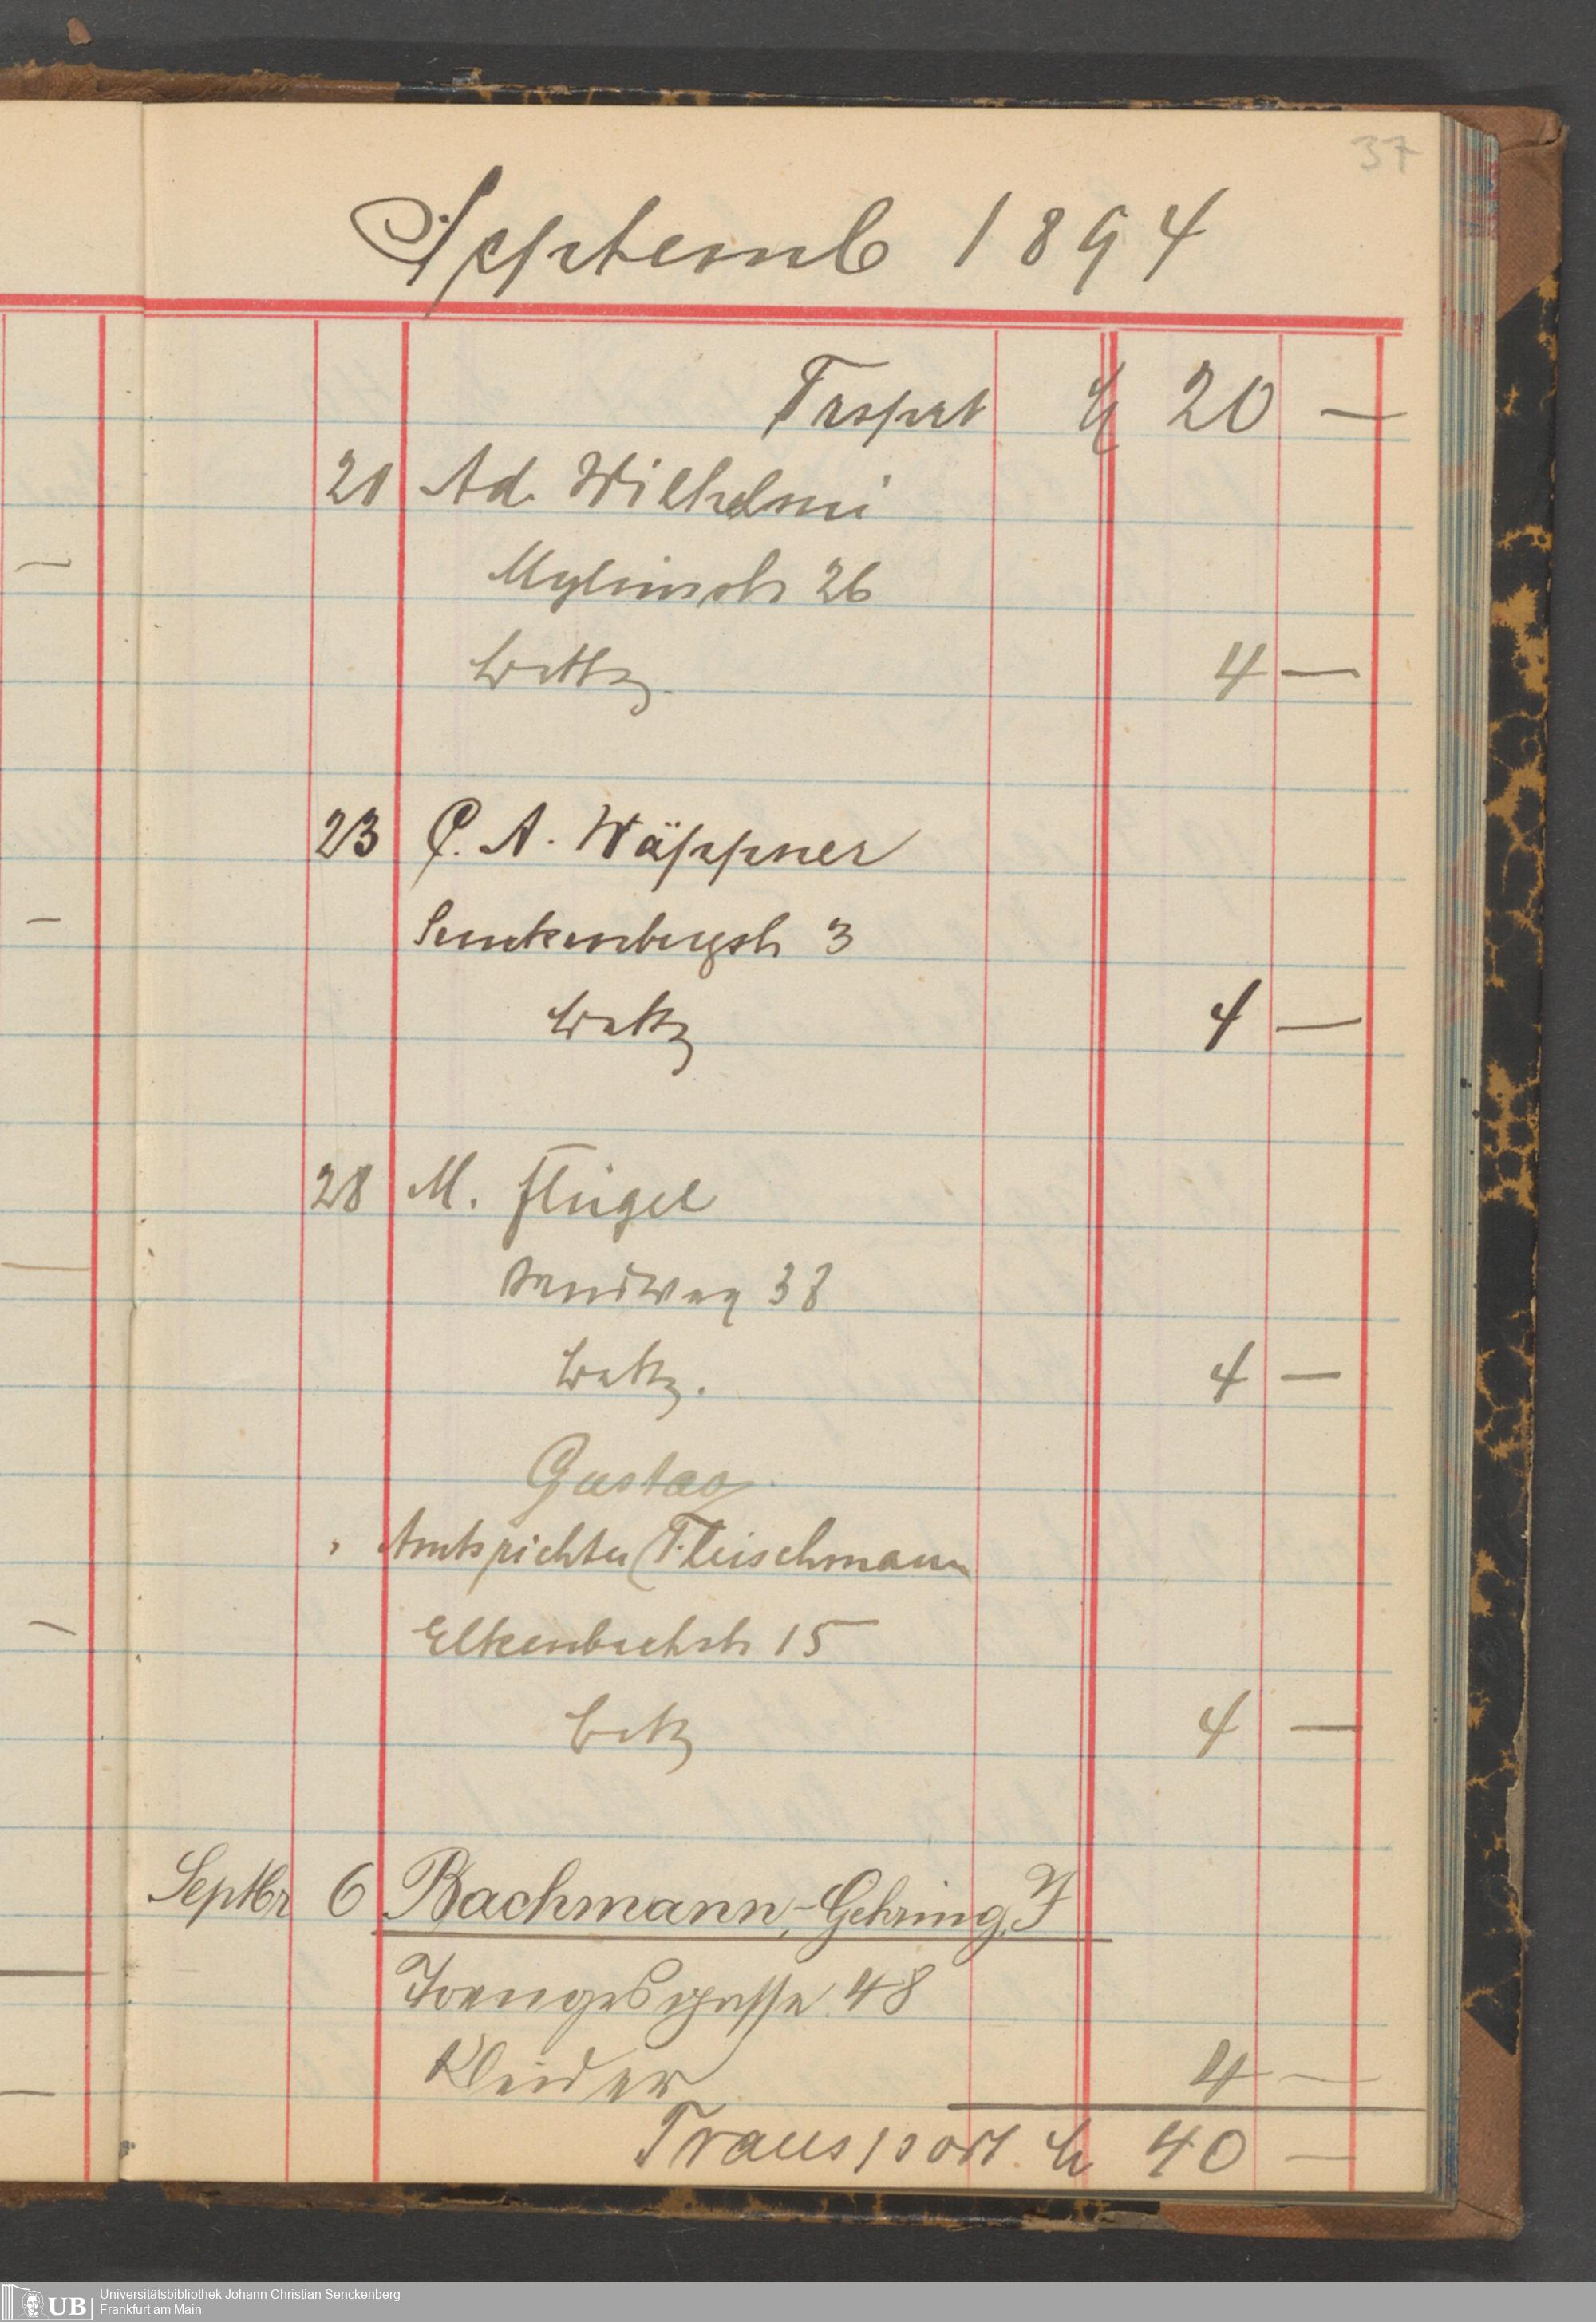 37
Septemb 1894
Trsprt ℳ 20 —
21 Ad. Wilhelmi
Myliusstr 26
4 —
23 C. A. Wäppner
Senckenbergstr 3
4 —
28 M. Flügel
Sandweg 38
4 —
Gustav
" Amtsrichter Fleischmann
Elkenbachstr 15
4 —
Septbr 6 Bachmann-Gehring, F
Toengesgasse 48
Kleider 4 —
Transport ℳ 40 —
UB Universitätsbibliothek Johann Christian Senckenberg
Frankfurt am Main